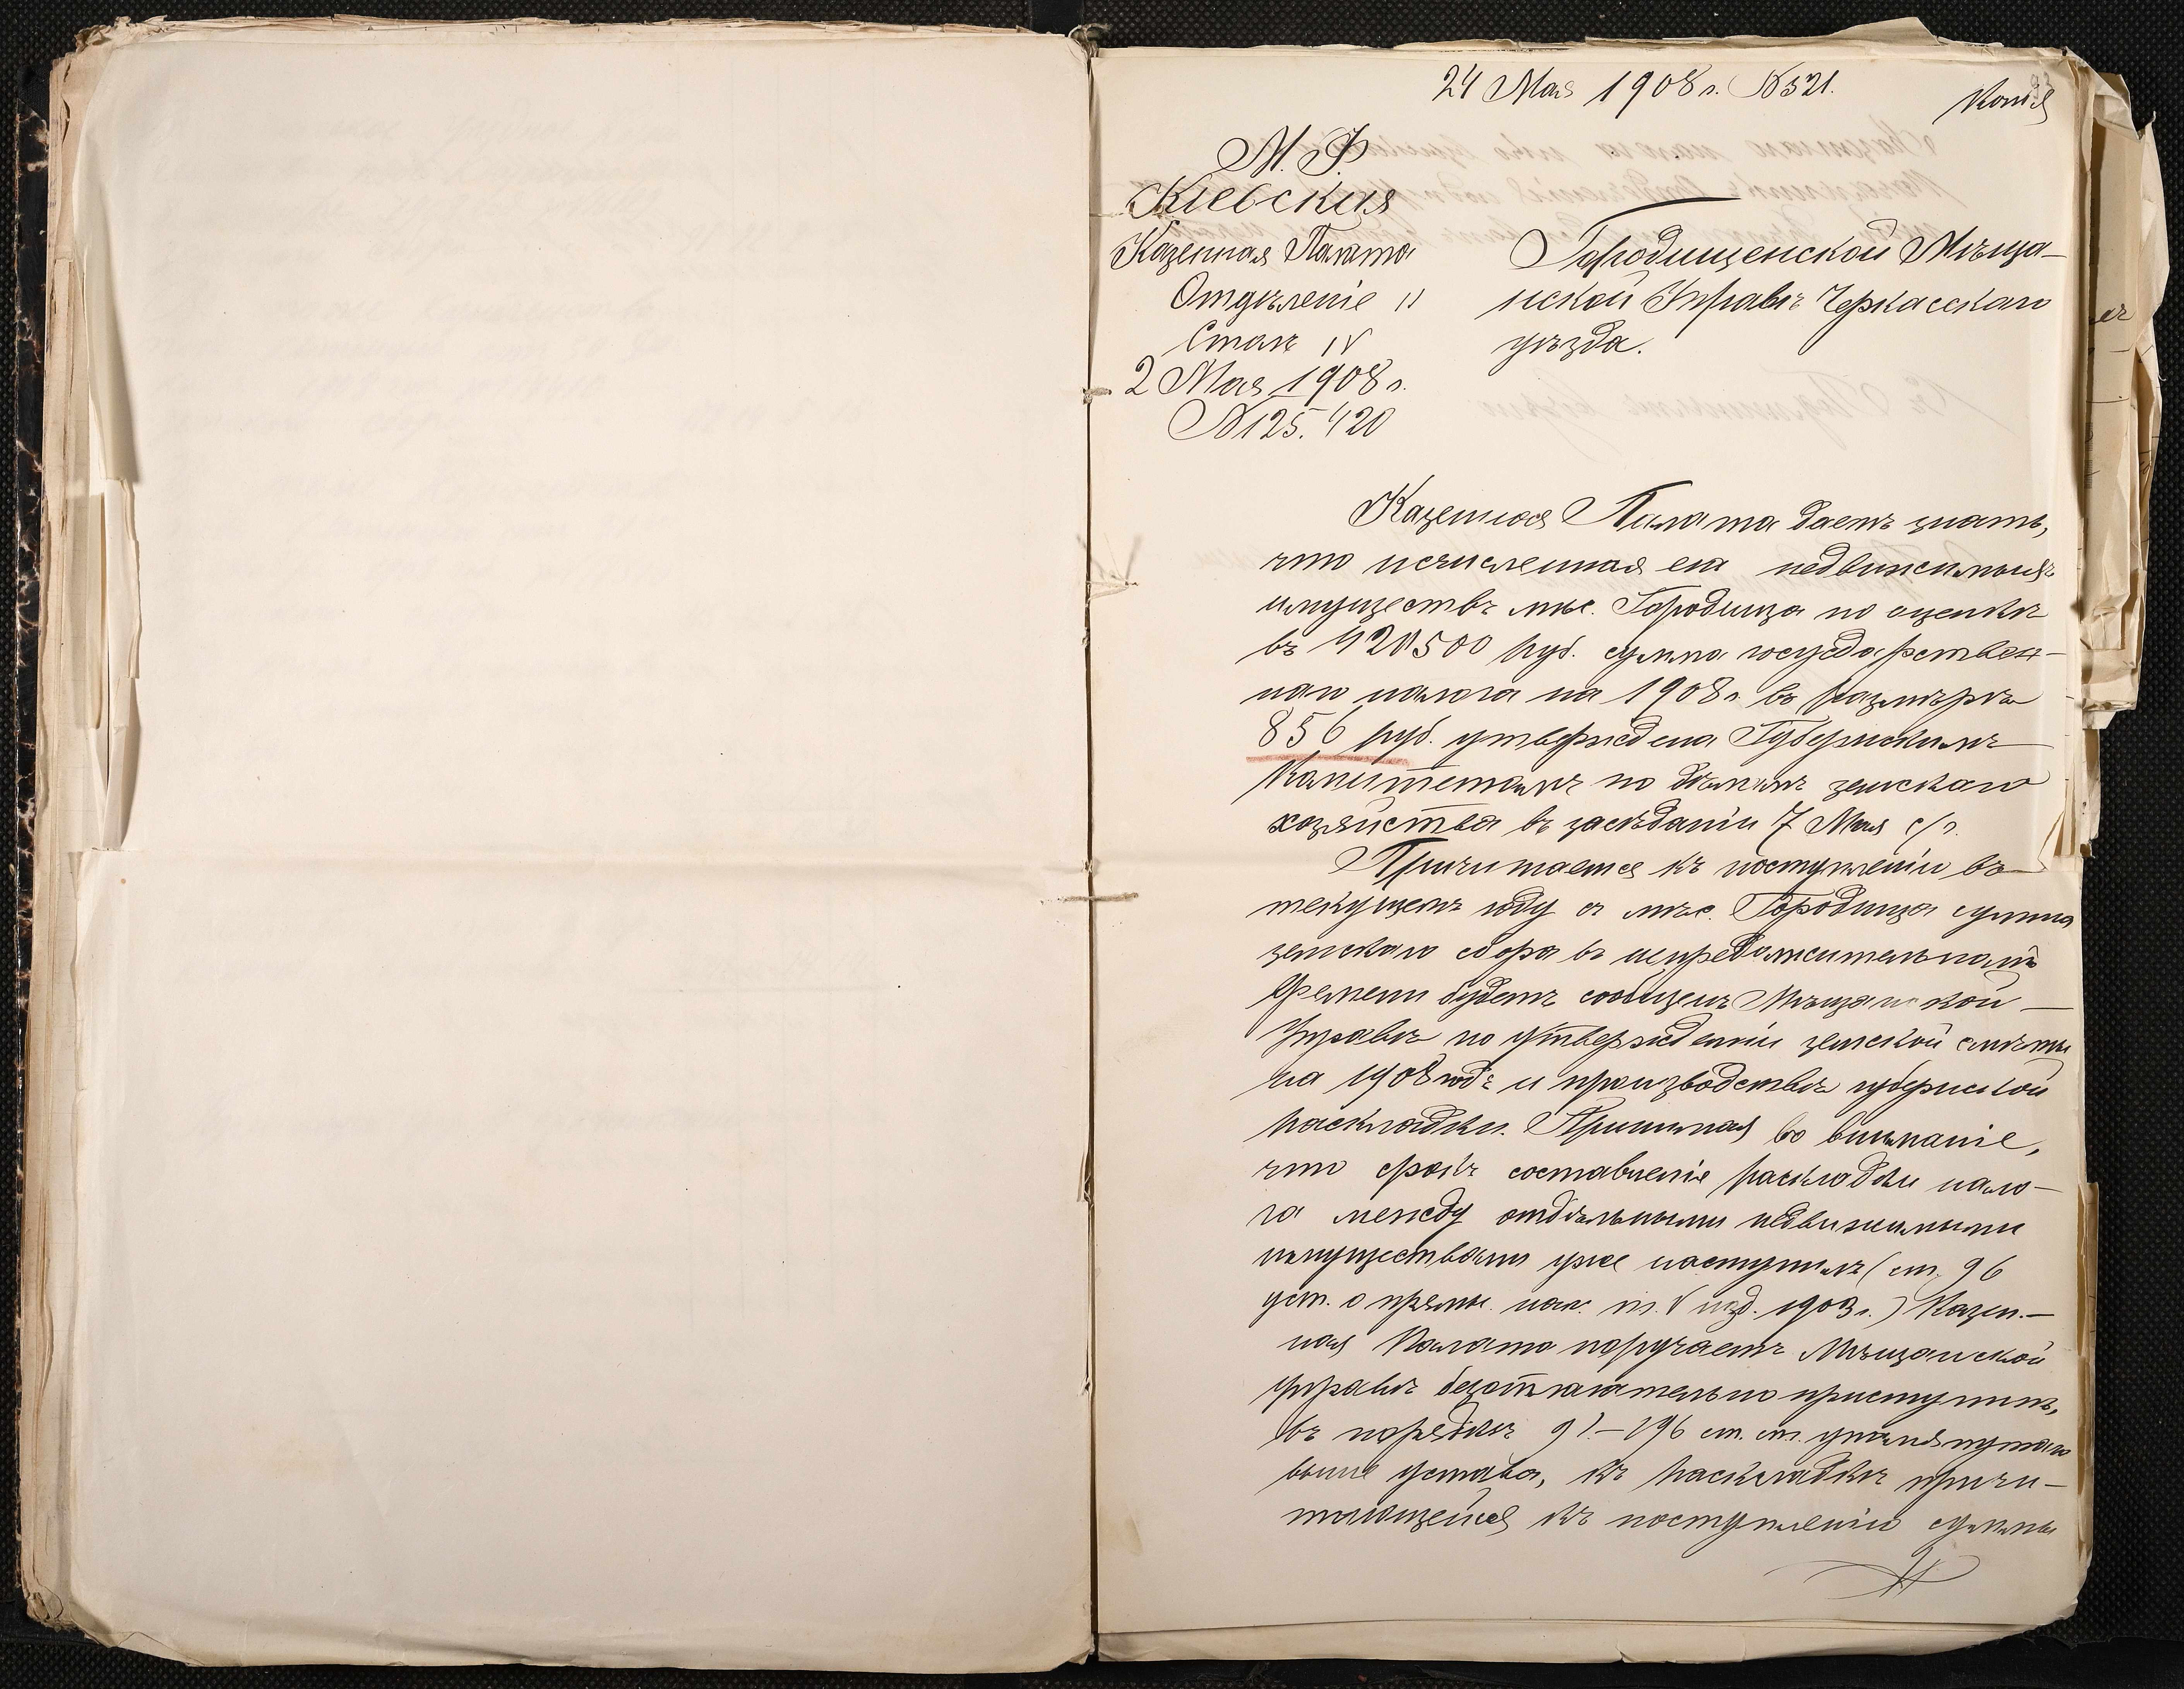 24 Мая 1908 г. №521.
Копія
М. Ф.
Кіевская
Казенная Палата
Отдѣленіе II
Столъ IV
2 Мая 1908 г.
№125.420
Городищенской Мѣща-
нской Управѣ Черкасскаго
уѣзда.
Казенная Палата даетъ знать,
что исчисленная съ недвижимыхъ
имуществъ мѣс. Городища по оценкѣ
въ руб. сумма государствен-
наго налога на 1908 г. въ размѣрѣ
856 руб. утверждена Губернскимъ
Комитетомъ по дѣламъ земскаго
хозяйства въ засѣданіи 7 Мая с/г.
Причитаемая къ поступленію въ
текущемъ году съ мѣс. Городища сумма
земскаго сбора въ непродолжительномъ
времени будетъ сообщена Мѣщанской
Управѣ по утвержденіи земской смѣты
на 1908 годъ и производствѣ губернской
раскладки. Принимая во вниманіе,
что срокъ составленія раскладки нало-
га между отдѣльными недвижимыми
имуществами уже наступилъ (ст. 96
уст. о прямы. нал. т. V изд. 1903 г.) Казен.-
ная Палата поручаетъ Мѣщанской
управѣ безотлагательно приступить,
въ порядкѣ ст. ст. упомянутаго
выше устава, къ раскладкѣ причи-
тающейся къ поступленію суммы